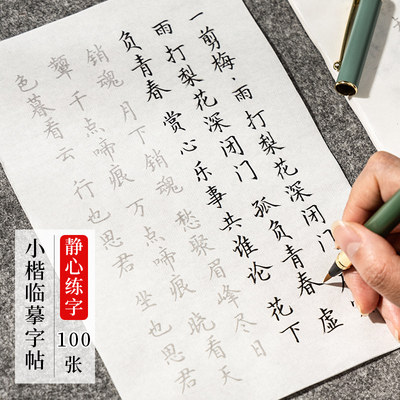 一剪梅·雨打梨花深闭门
雨打梨花深闭门 孤负青春 虚
负青春 赏心乐事共谁论 花下
销魂 月下销魂 愁聚眉峰尽日
颦 千点啼痕 万点啼痕 晓看天
色暮看云 行也思君 坐也思君
静心练字
小楷临摹字帖
100
张